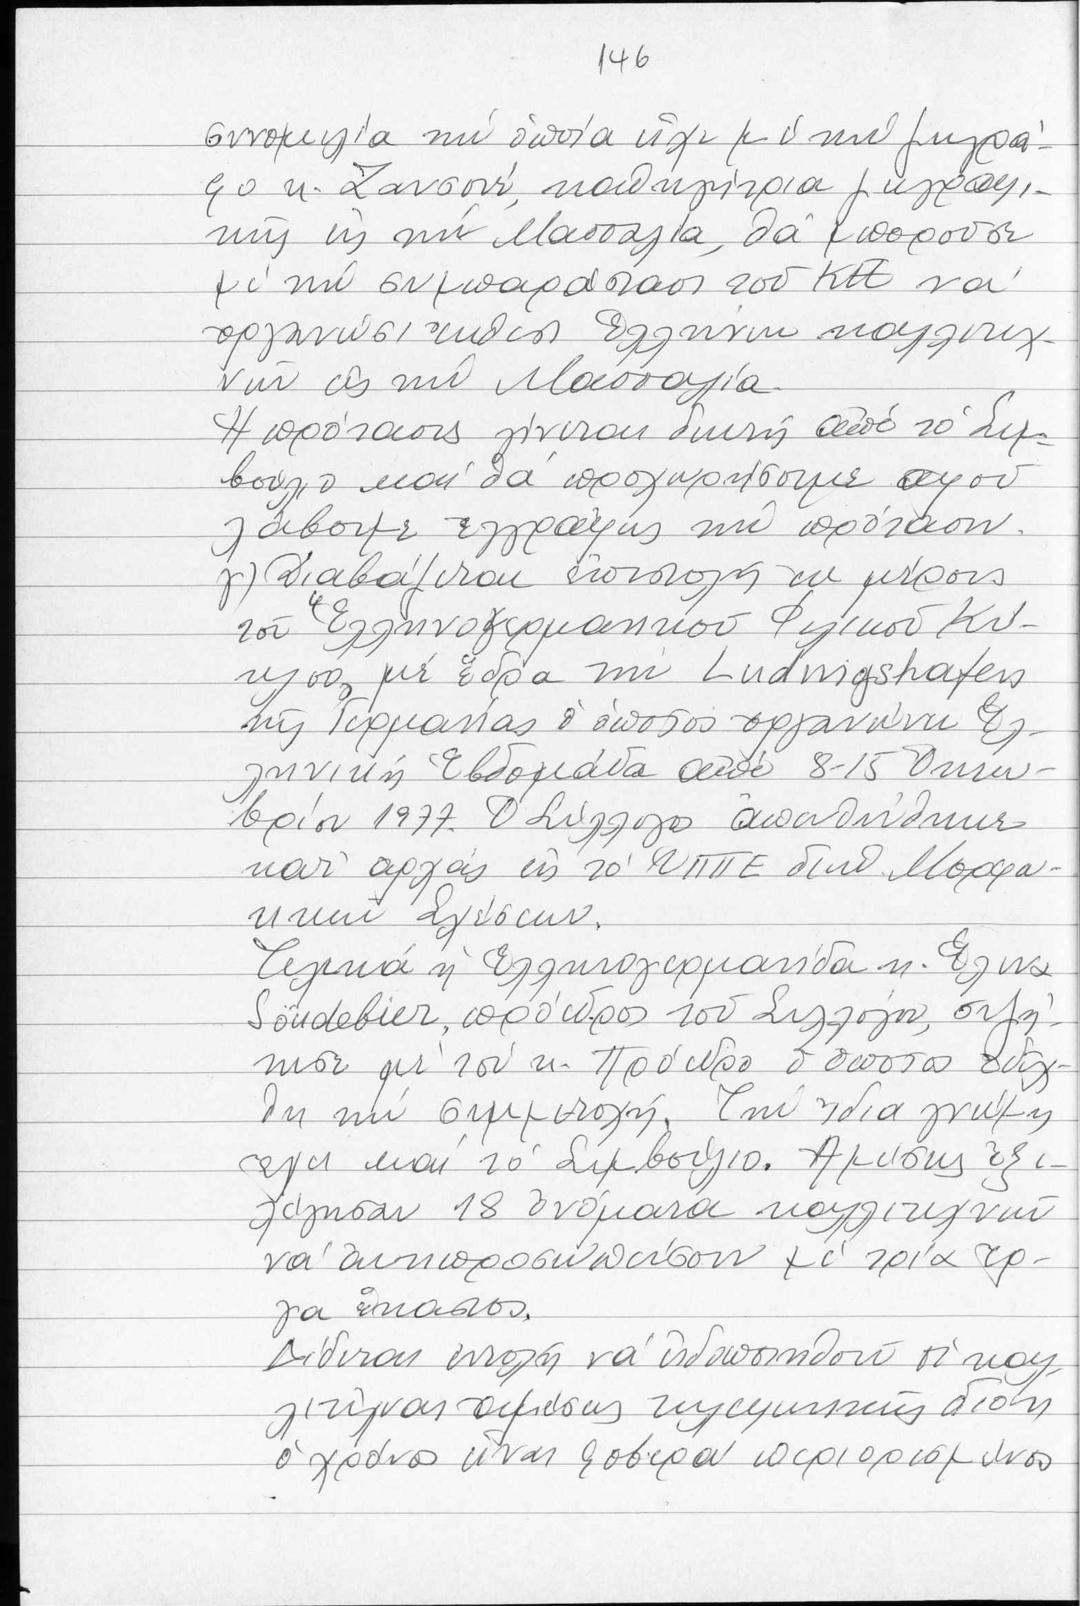 146
συνομιλία την όποία είχε μέ την ζωγρά-
φο κ. Ζανσονέ, καθηγήτρια ζωγραφι-
κής εις την Μασσαλία, θά μπορούσε
μέ την συμπαράσταση τού ΚΠ νά
οργανώσει έκθεση Ελλήνων καλλιτεχ-
νών εις την Μασσαλία.
Η πρότασις γίνεται δεκτή από τό Συμ-
βούλιο καί θά προχωρήσουμε αφού
λάβουμε εγγράφως την πρότασιν.
γ) Διαβάζεται επιστολή εκ μέρους
τού "Ελληνογερμανικού Φιλικού Κύ-
κλου, μέ έδρα την Ludwigshafen
της Γερμανίας ό όποίος οργανώνει Ελ-
ληνική Εβδομάδα από 8-15 Οκτω-
βρίου 1977. Ο Σύλλογος απευθύνθηκε
κατ' αρχάς εις τό ΥΠΠΕ δ/νση Μορφω-
τικών Σχέσεων.
Τελικά ή Ελληνογερμανίδα κ. Ελενα
Söudebier, πρόεδρος τού Συλλόγου, συζή-
τησε μέ τον κ. Πρόεδρο ό όποίος εδέχ-
θη την συμμετοχή. Την ίδια γνώμη
έχει καί τό Συμβούλιο. Αμέσως εξε-
λέγησαν 18 ονόματα καλλιτεχνών
νά αντιπροσωπεύσουν μέ τρία έρ-
γα έκαστος.
Δίδεται εντολή νά ειδοποιηθούν οί καλ-
λιτέχναι αμέσως τηλεφωνικής διότι
ό χρόνος είναι φοβερά περιορισμένος